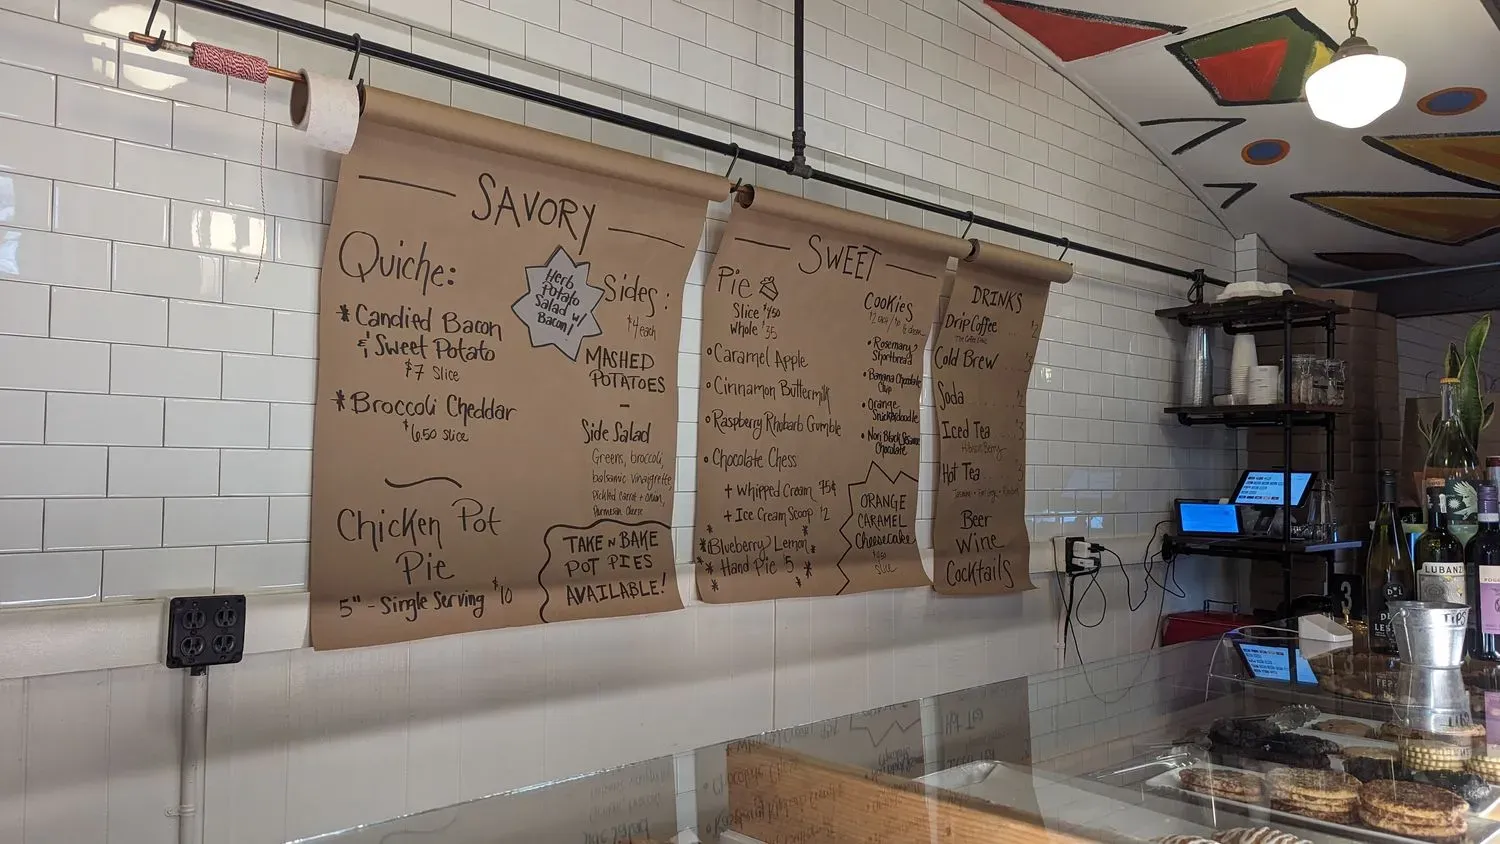 SAVORY
Quiche:
* Candied Bacon
& Sweet Potato
$7 Slice
* Broccoli Cheddar
$6.50 Slice
Chicken Pot
Pie
5" - Single Serving $10
Herb
Potato
Salad w/
Bacon!
Sides:
$4 each
MASHED
POTATOES
-
Side Salad
Greens, broccoli,
balsamic vinaigrette
Pickled carrot + onion,
Parmesan Cheese
TAKE N BAKE
POT PIES
AVAILABLE!
SWEET
Pie
Slice $4.50
Whole $35
• Caramel Apple
• Cinnamon Buttermilk
• Raspberry Rhubarb Crumble
• Chocolate Chess
+ Whipped Cream 75¢
+ Ice Cream Scoop $2
* Blueberry Lemon *
* Hand Pie $5 *
Cookies
$2 each/
• Rosemary
Shortbread
• Banana Chocolate
Chip
• Orange
Snickerdoodle
• Nori Black Sesame
Chocolate
ORANGE
CARAMEL
Cheesecake
slice
DRINKS
Drip Coffee $2
Cold Brew
Soda
Iced Tea $3
Hibiscus Berry
Hot Tea $3
Beer
Wine
Cocktails
3
LUBANZI
TIPS